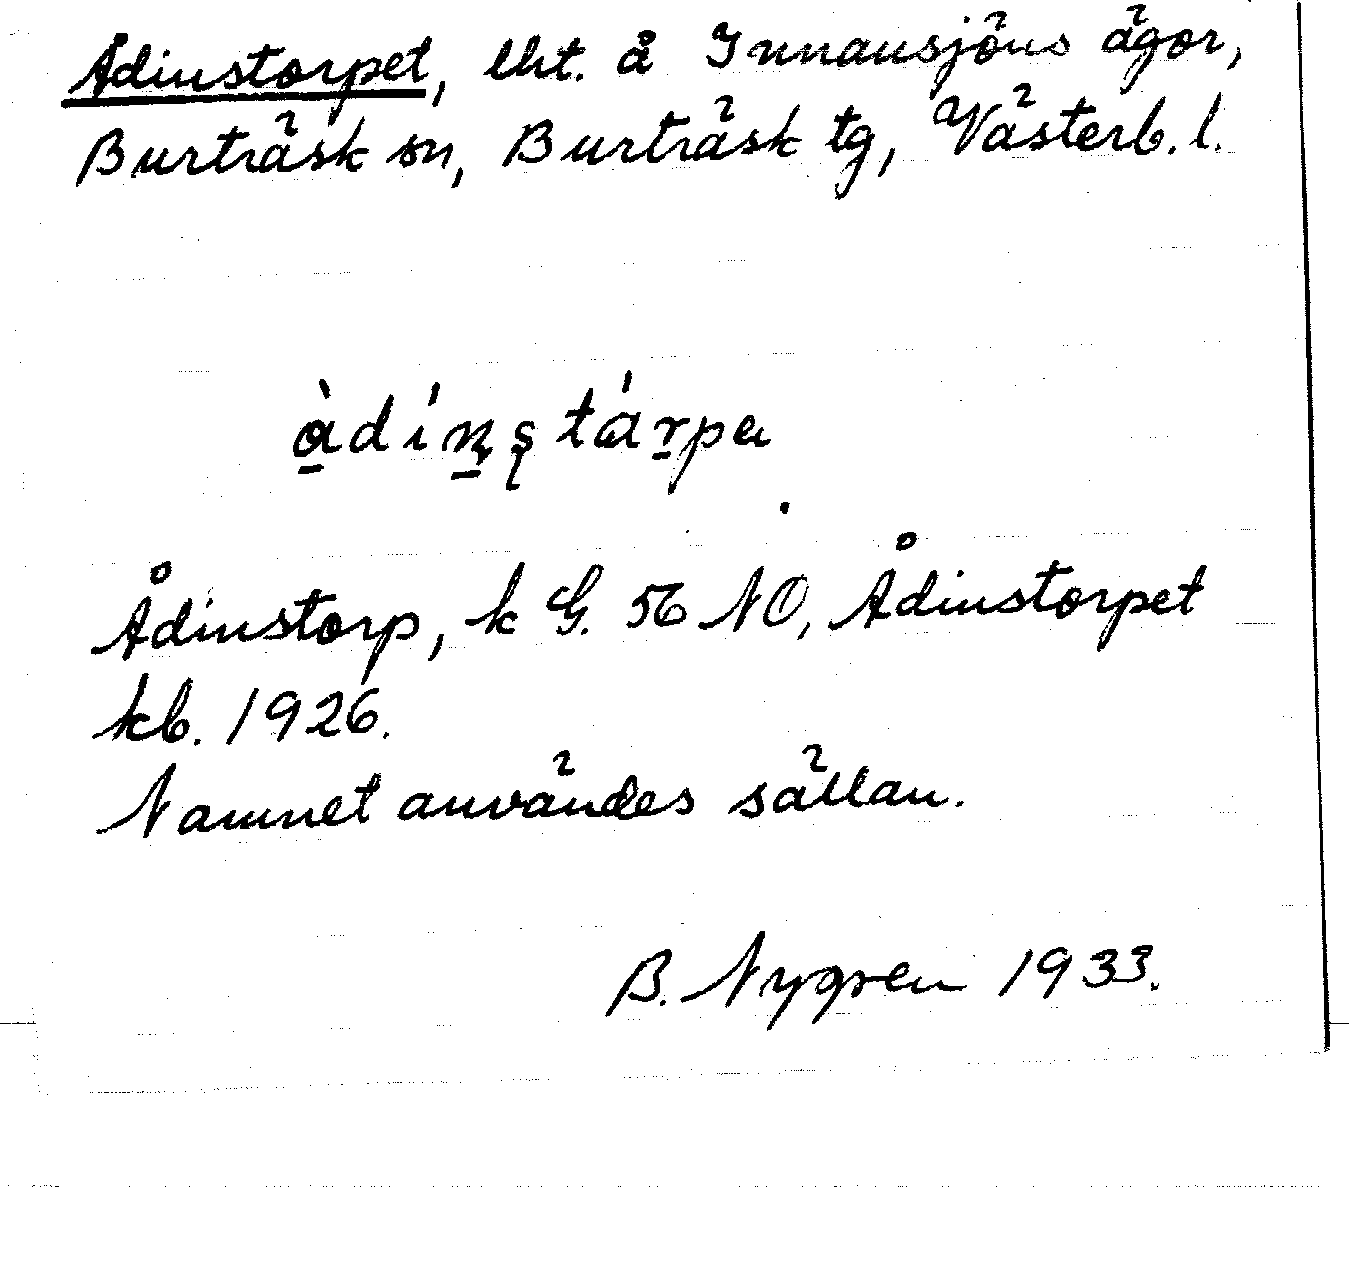 Ådinstorpet, lht. å Innansjöns ägor,
Burträsk sn, Burträsk tg, Västerb. l.
Ådinstorp, k G. 56 NO, Ådinstorpet
kb. 1926.
Namnet användes sällan.
B. Nygren 1933.